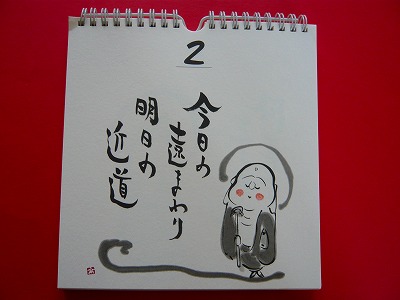 2
今日の
遠まわり
明日の
近道